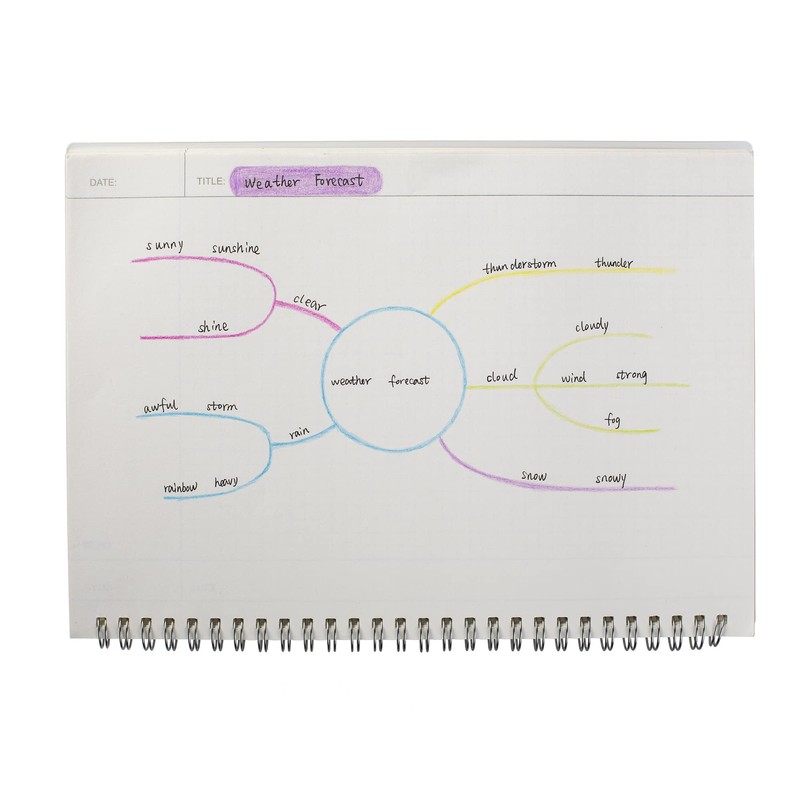 DATE:
TITLE: Weather Forecast
sunny sunshine
shine
clear
awful storm
rainbow heavy
rain
weather forecast
thunderstorm thunder
cloud
cloudy
wind strong
fog
snow snowy